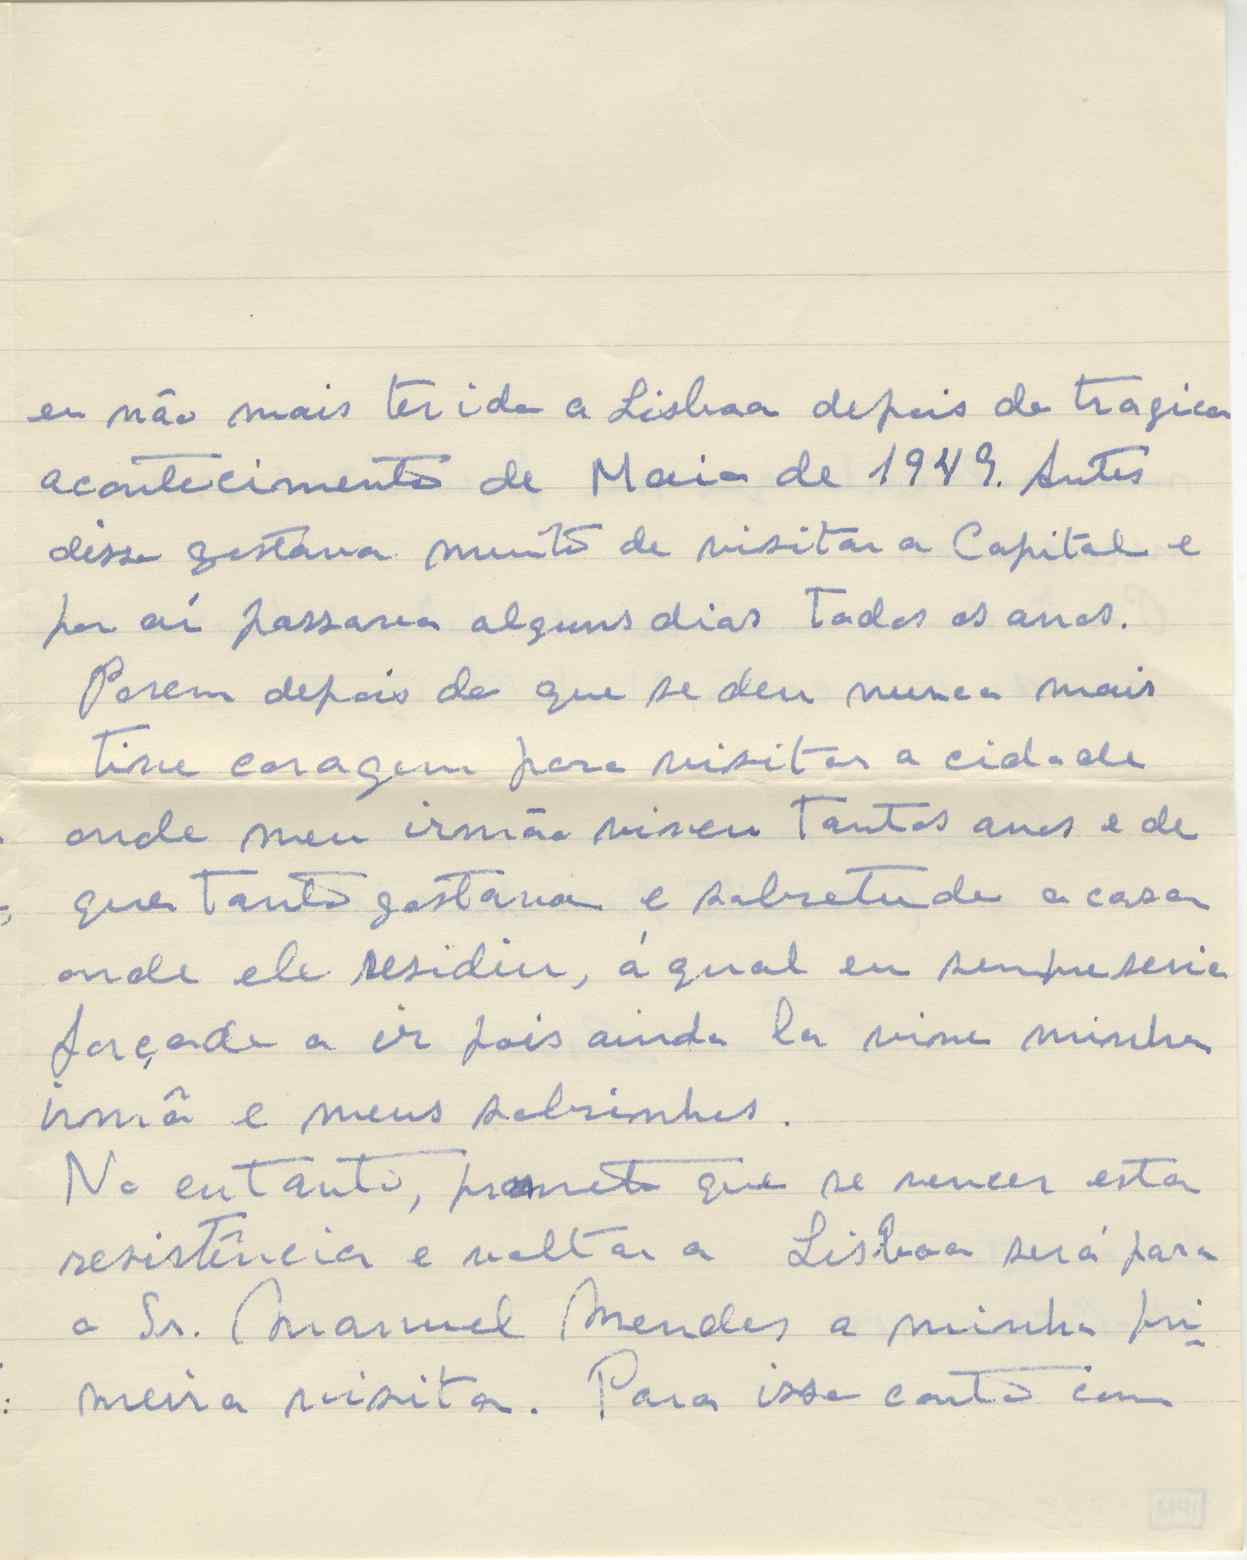 eu não mais ter ido a Lisboa depois do tragico
acontecimento de Maio de 1949. Antes
disso gostava muito de visitar a Capital e
por aí passava alguns dias todos os anos.
Porem depois do que se deu nunca mais
tive coragem para visitar a cidade
onde meu irmão viveu tantos anos e de
que tanto gostava e sobretudo a casa
onde ele residiu, á qual eu sempre seria
forçado a ir pois ainda la vive minha
irmã e meus sobrinhos.
No entanto, prometo que se vencer esta
resistência e voltar a Lisboa será para
o Sr. Manuel Mendes a minha pri-
meira visita. Para isso conto com